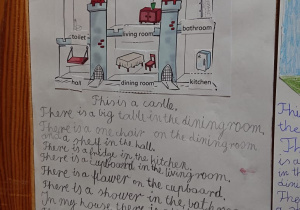 toilet
living room
bathroom
hall
dining room
kitchen
This is a castle.
There is a big table in the dining room,
There is one chair on the dining room
and a shelf in the hall.
There is a fridge in the kitchen.
There is a cupboard in the living room.
There is a flower on the cupboard
There is a shower in the bathroom
In my house there is